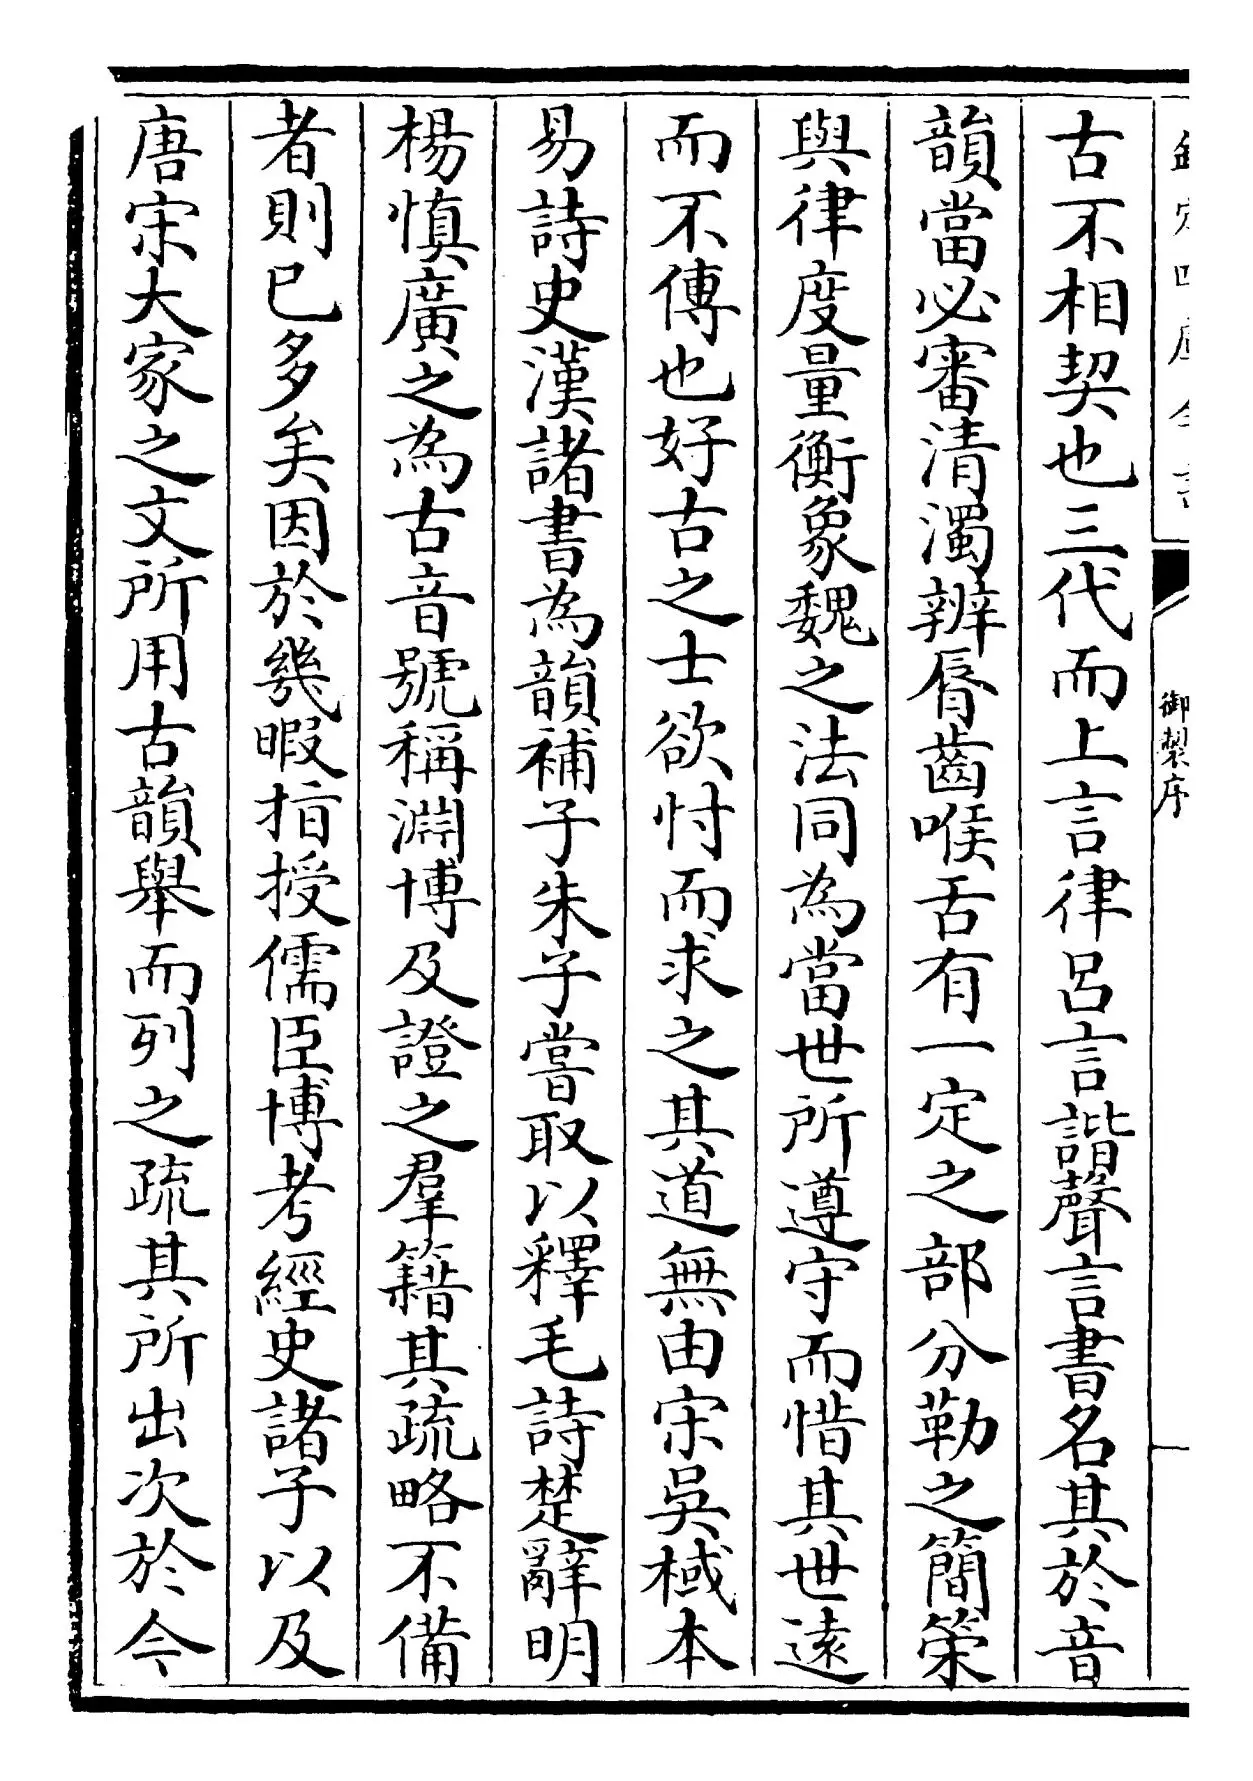 欽定四庫全書
御製序
古不相契也三代而上言律呂言諧聲言書名其於音
韻當必審清濁辨脣齒喉舌有一定之部分勒之簡策
與律度量衡象魏之法同為當世所遵守而惜其世遠
而不傳也好古之士欲忖而求之其道無由宋吳棫本
易詩史漢諸書為韻補子朱子嘗取以釋毛詩楚辭明
楊慎廣之為古音號稱淵博及證之羣籍其疏略不備
者則已多矣因於幾暇指授儒臣博考經史諸子以及
唐宋大家之文所用古韻舉而列之疏其所出次於今